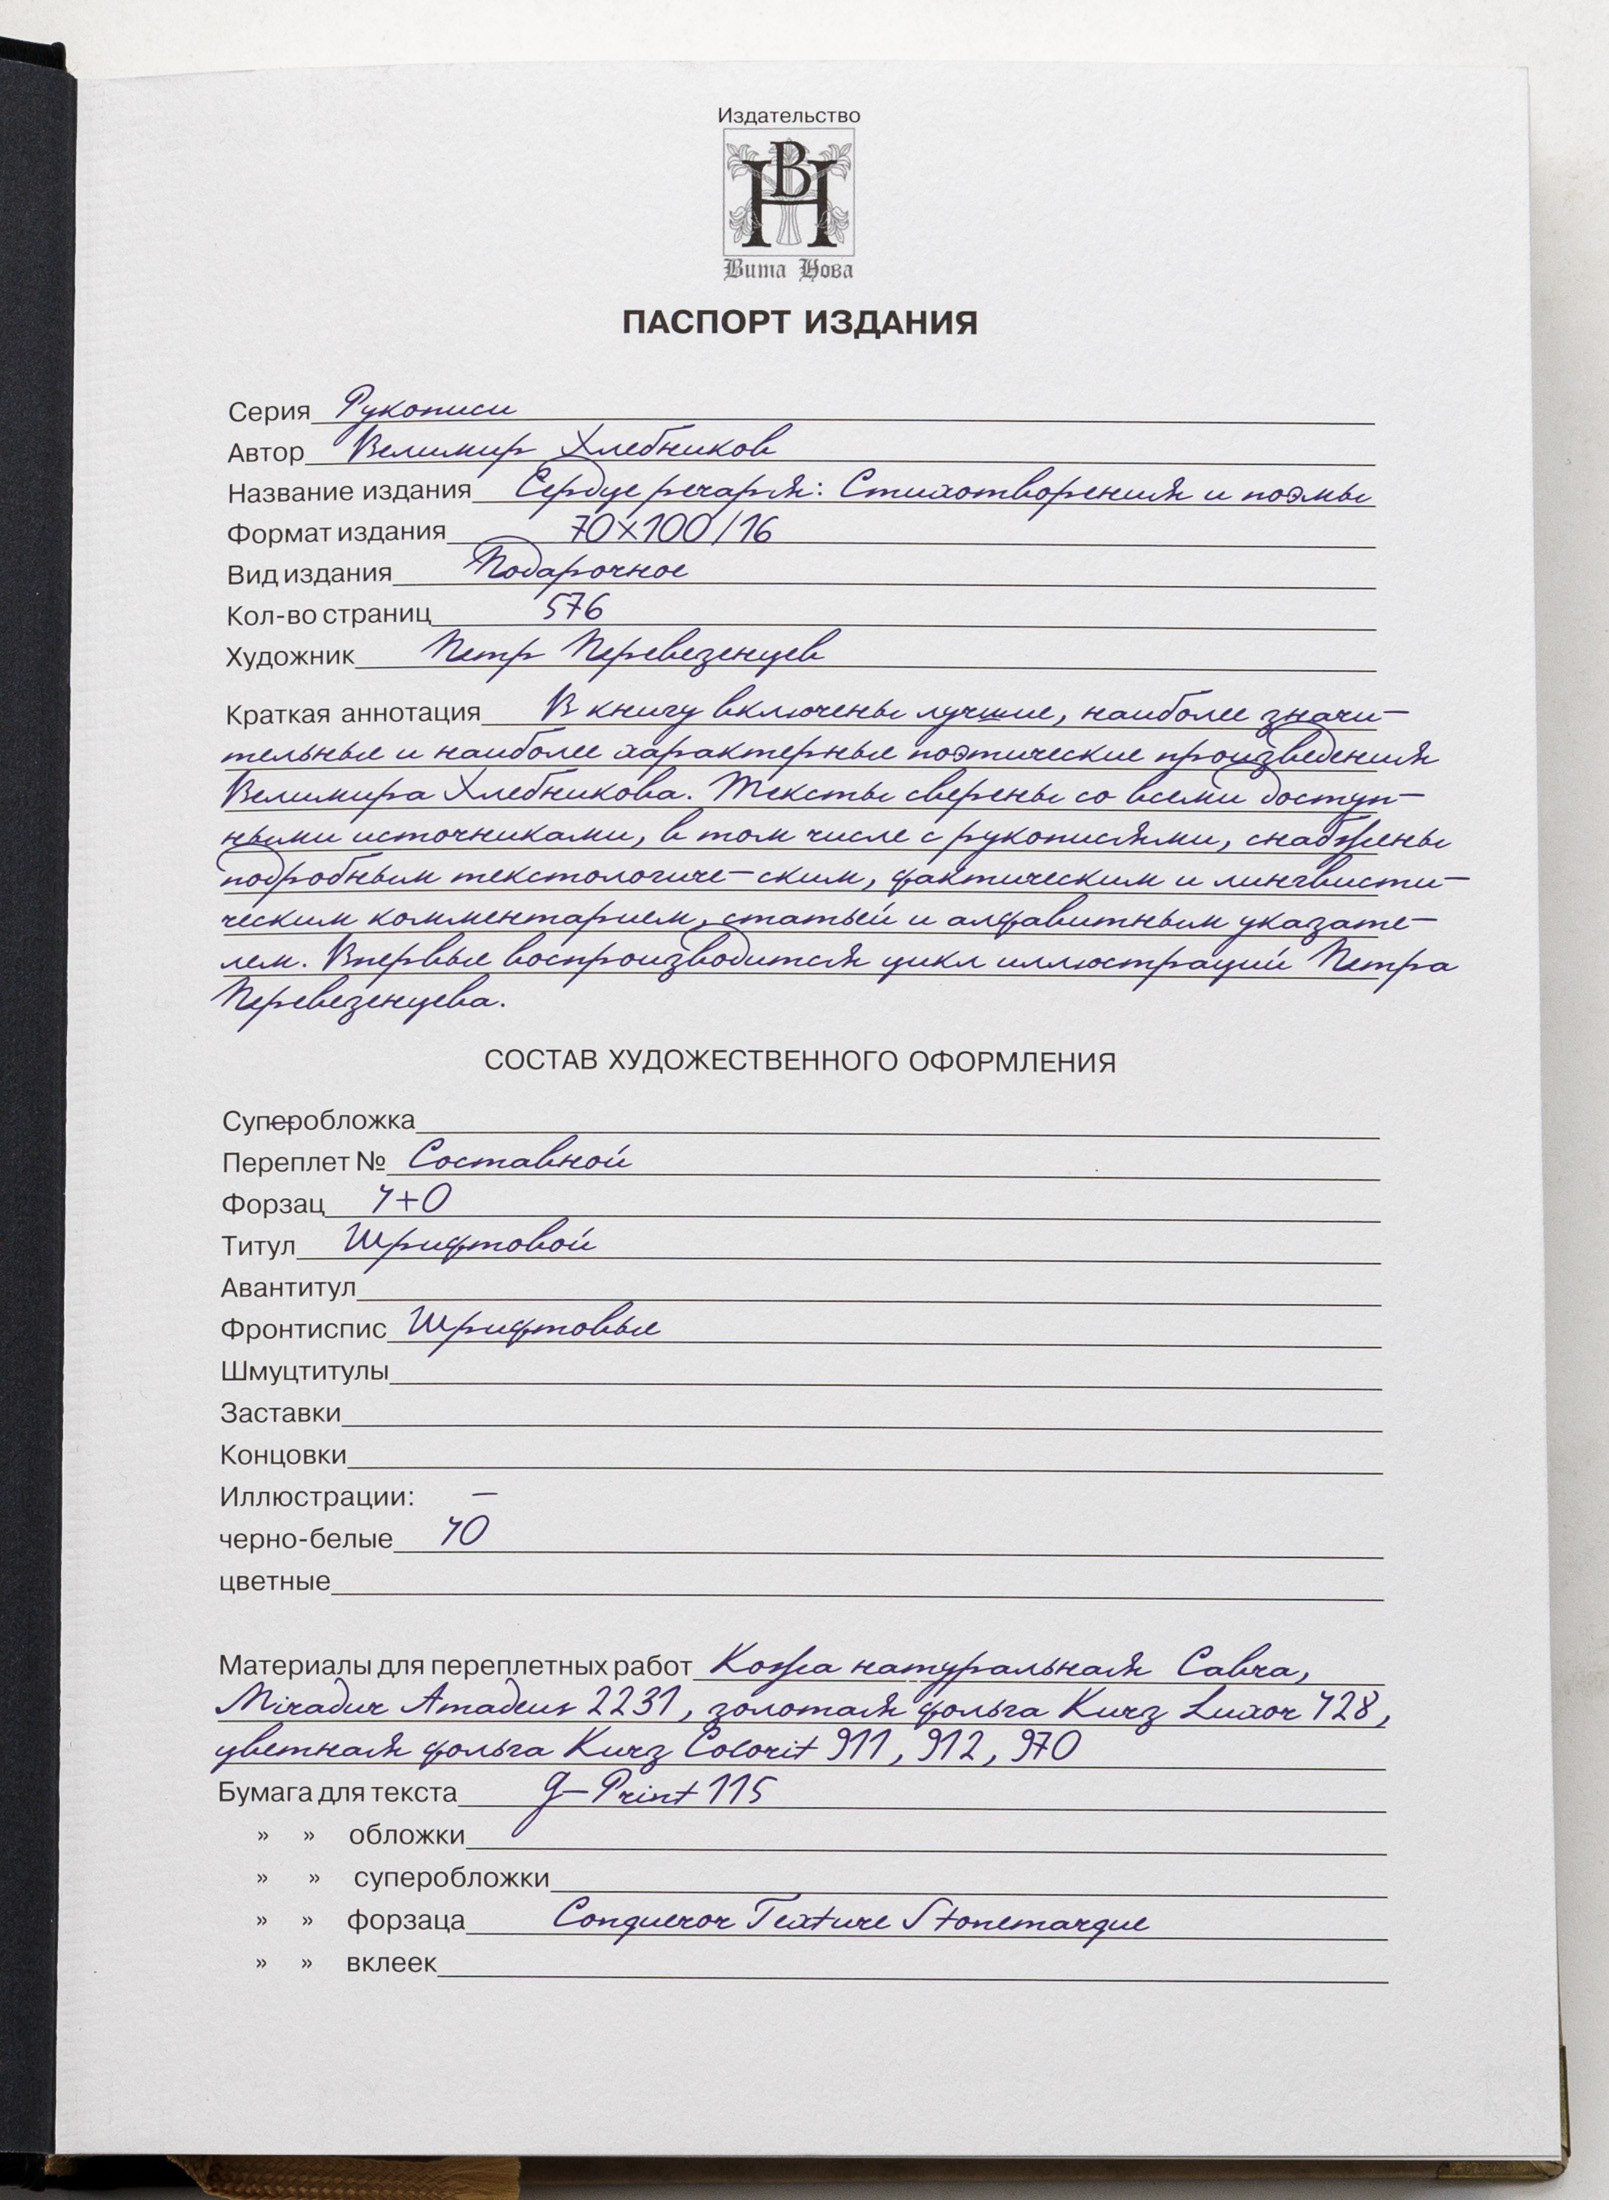 Издательство
ВН
Вита Нова
ПАСПОРТ ИЗДАНИЯ
Серия Рукописи
Автор Велимир Хлебников
Название издания Сердце речаря: Стихотворения и поэмы
Формат издания 70×100/16
Вид издания Подарочное
Кол-во страниц 576
Художник Петр Перевезенцев
Краткая аннотация В книгу включены лучшие, наиболее значи-
тельные и наиболее характерные поэтические произведения
Велимира Хлебникова. Тексты сверены со всеми доступ-
ными источниками, в том числе с рукописями, снабжены
подробным текстологиче-ским, фактическим и лингвисти-
ческим комментарием, статьей и алфавитным указате-
лем. Впервые воспроизводится цикл иллюстраций Петра
Перевезенцева.
СОСТАВ ХУДОЖЕСТВЕННОГО ОФОРМЛЕНИЯ
Суперобложка
Переплет № Составной
Форзац 4+0
Титул Шрифтовой
Авантитул
Фронтиспис Шрифтовые
Шмуцтитулы
Заставки
Концовки
Иллюстрации: –
черно-белые 40
цветные
Материалы для переплетных работ Кожа натуральная Cabra,
Miradur Amadeus 2231, золотая фольга Kurz Luxor 428,
цветная фольга Kurz Colorit 911, 912, 970
Бумага для текста g-Print 115
» » обложки
» » суперобложки
» » форзаца Conqueror Texture Stonemarque
» » вклеек